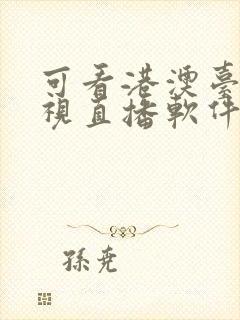 可看港澳臺
視直播軟件
孫堯